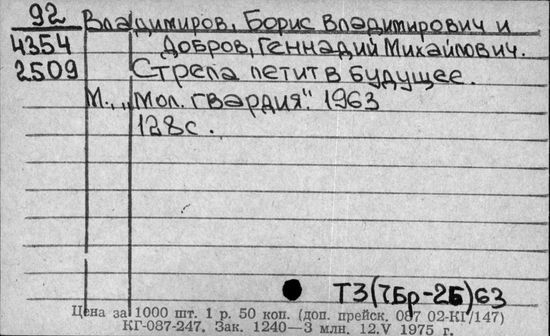 92 Владимиров, Борис Владимирович и
4354 Добров, Геннадий Михайлович.
2509 Стрела летит в будущее.
М., „Мол. гвардия". 1963
128с.
ТЗ(7Бр-2Б)63
Цена за 1000 шт. 1 р. 50 коп. (доп. прейск. 087 02-КГ/147)
КГ-087-247. Зак. 1240—3 млн. 12.V 1975 г.